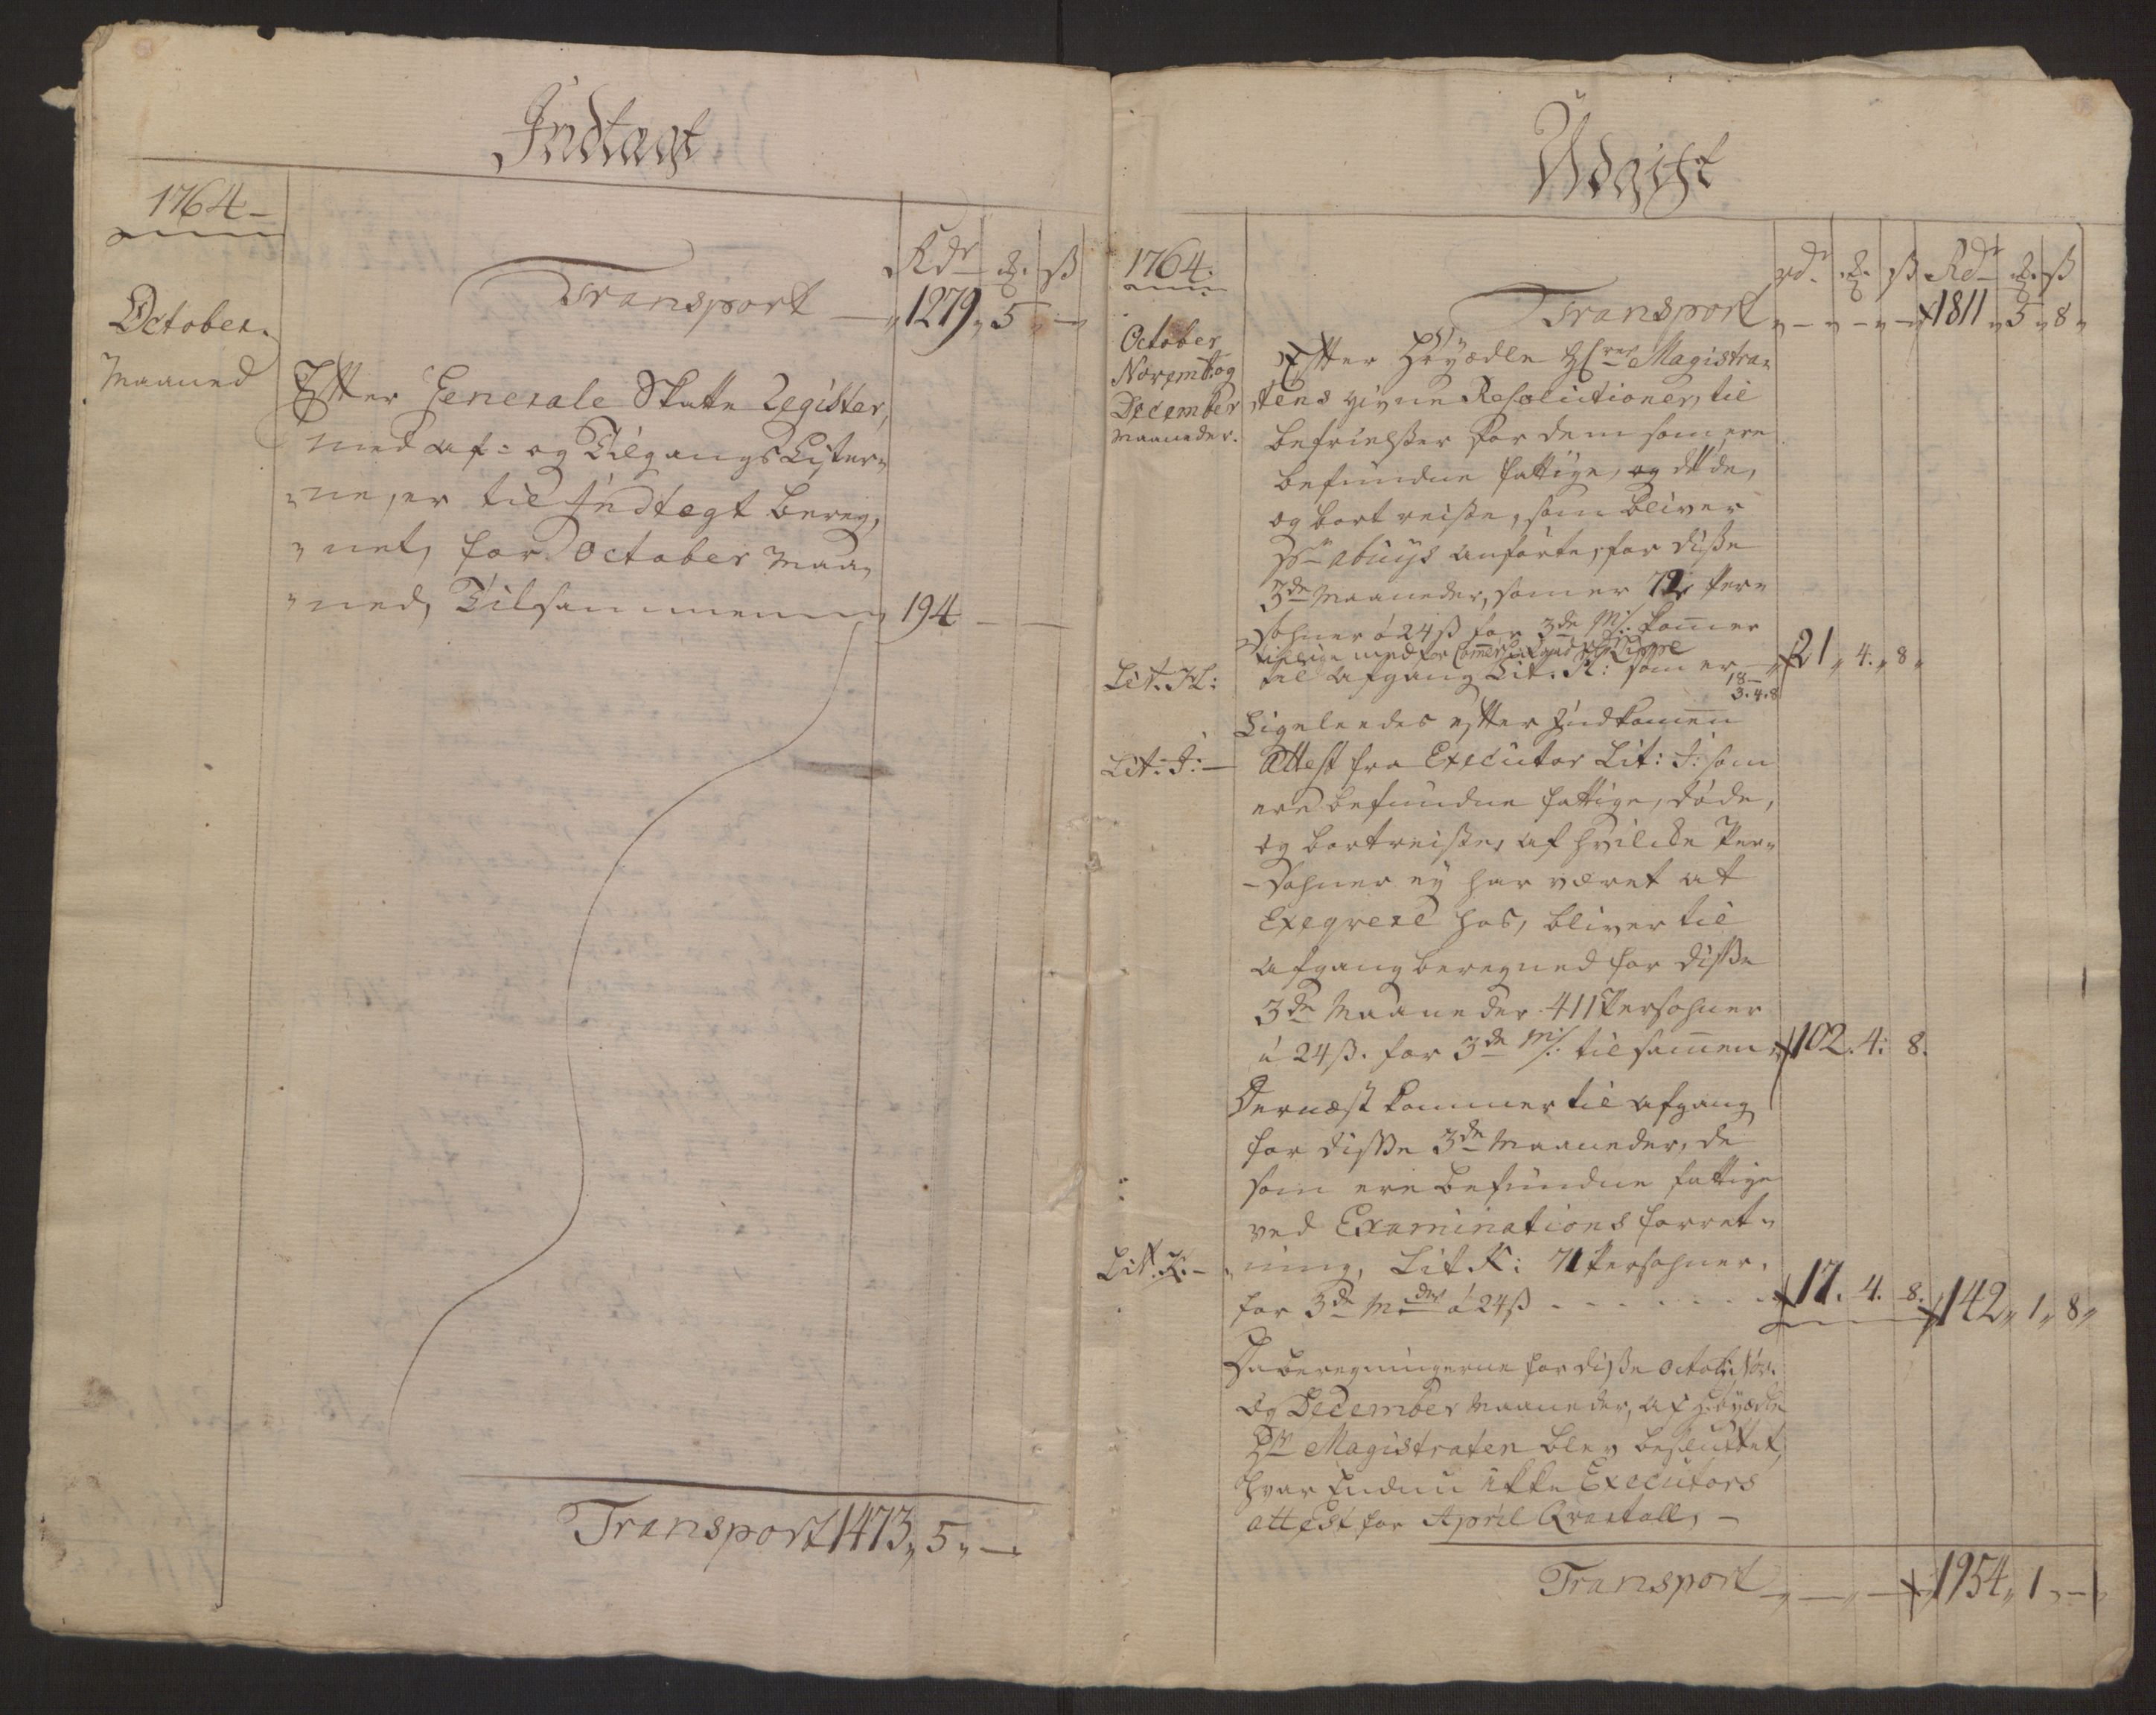 Indtægt
1764
Rdr ß
October
Maaned
Transport 1279, 5 —
Efter Generale Skatte Register,
med af- og Tilgangs Lister-
ne, er til Indtægt bereg-
net, for October Maa-
ned, Tilsammen 194 — —
Transport 1473, 5, —
Udgift
1764.
rd. ß Rdr ß
October
Novemb: og
December
Maaneder.
Transport — — — 1811, 5, 8,
Efter Höyædle Magistra-
tens givne Resolutioner, til
befrielsser for dem som ere
befundne fattige, og döde,
og bort reiste, som bliver
anförte, for disse
3de Maaneder, som er 72 Per-
sohner á 24 ß for 3de M: kommer
til Afgang Lit. H: som er 21, 4, 8,
18 —
3. 4. 8
Lit. H:
Ligeleedes efter Indkommen
Lit: I: — Attest fra Executor Lit: I: som
ere befundne fattige, döde,
og bortreiste, af hvilcke Per-
sohner ey har været at
Exeqvere hos, bliver til
Afgang beregned for disse
3de Maaneder 411 Persohner
á 24 ß. for 3de M: tilsammen 102. 4: 8.
Dernæst kommer til Afgang
for disse 3de Maaneder, de
som ere befundne fattige
ved Examinations forret-
Lit. K. — ning, Lit K: 71 Persohner,
for 3de Mder á 24 ß - - - - - 17. 4. 8. 142, 1, 8,
Da beregningerne for disse Octob: Nov:
og December Maaneder, af Höyædle
Hr Magistraten blev besluttet,
hvor Endnu ikke Executors
attest for April Qvartall, —
Transport — — — 1954, 1, —